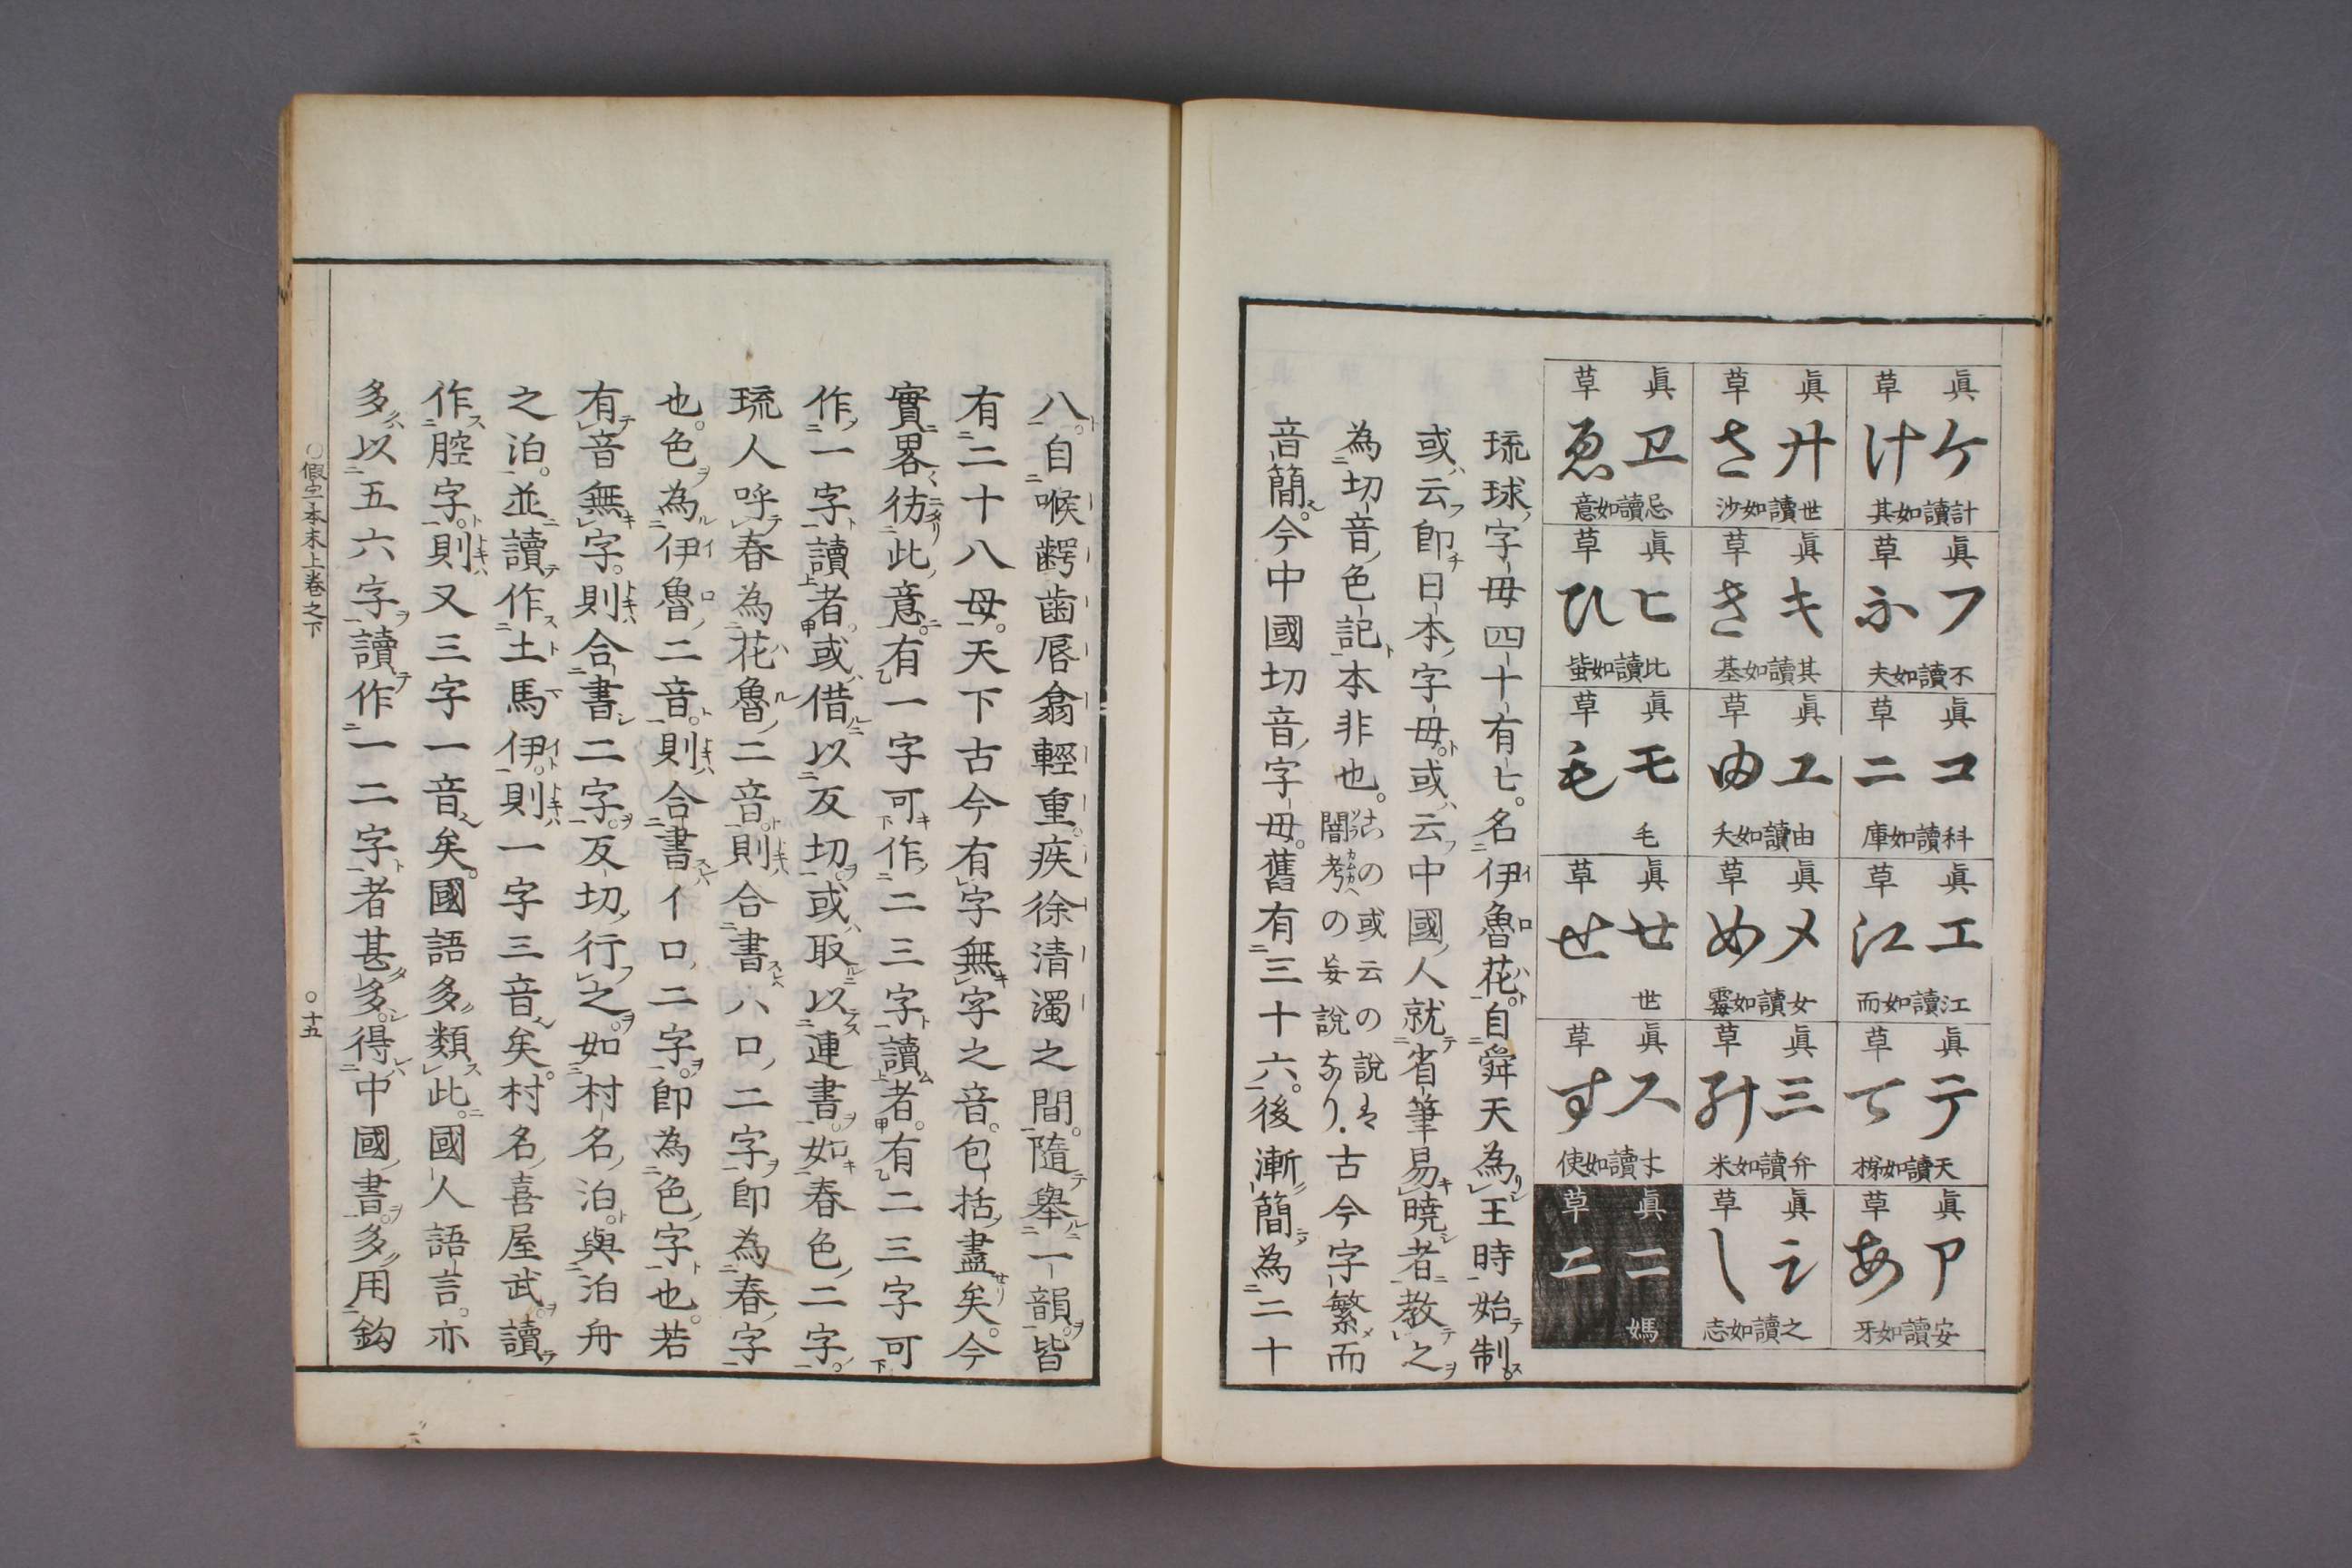 眞 ケ
草 け
計讀如其
眞 フ
草 ふ
不讀如夫
眞 コ
草 ニ
科讀如庫
眞 エ
草 江
江讀如而
眞 テ
草 て
天讀如梯
眞 ア
草 あ
安讀如牙
眞 サ
草 さ
世讀如沙
眞 キ
草 き
其讀如基
眞 ユ
草 由
由讀如夭
眞 メ
草 め
女讀如霉
眞 三
草
弁讀如米
眞
草 し
之讀如志
眞 ヱ
草 ゑ
忌讀如意
眞 ヒ
草 ひ
比讀如蚩
眞 モ
草 毛
毛
眞 せ
草 せ
世
眞 ス
草 す
讀如使
眞 二
草 ニ
媽
琉球字母四十有七。名伊魯花。自舜天為王時始制。
或云即日本字母。或云中國人就省筆易曉者教之
為切音色記本非也。古の或云の說は闇考の妄說あり.古今字繁而
音簡。今中國切音字母。舊有三十六。後漸簡為二十
八。自喉齶齒唇翕輕重。疾徐清濁之間。隨舉一韻。皆
有二十八母。天下古今有字無字之音。包括盡矣。今
實畧彷此意。有一字可作二三字讀者。有二三字可
作一字讀者。或借以反切。或取以連書。如春色二字。
琉人呼春為花魯二音。則合書ハロ二字即為春字
也。色為伊魯二音。則合書イロ二字。即為色字也。若
有音無字。則合書二字。反切行之。如村名泊。與泊舟
之泊。並讀作土馬伊。則一字三音矣。村名喜屋武讀
作腔字。則又三字一音矣。國語多類此。國人語言。亦
多以五六字讀作一二字者甚多。得中國書多用鈎
○假字本末上卷之下
○十五